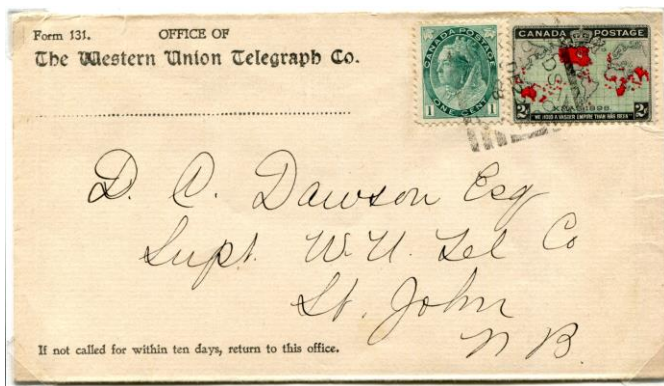 Form 131. OFFICE OF
The Western Union Telegraph Co.
CANADA POSTAGE
1 ONE CENT 1
CANADA POSTAGE
XMAS 1898
2 2
"WE HOLD A VASTER EMPIRE THAN HAS BEEN"
D. C. Dawson Esq
Supt. W. U. Tel Co
St. John
N B.
If not called for within ten days, return to this office.